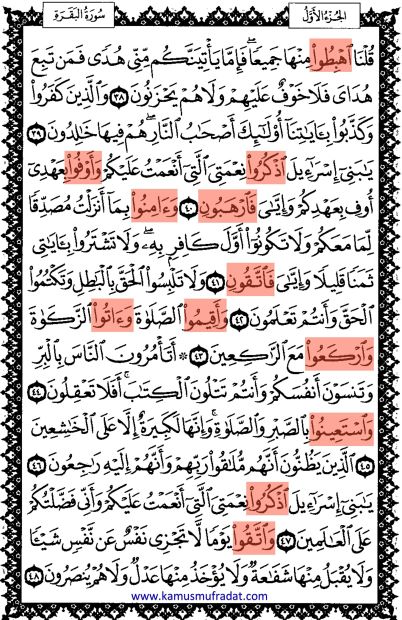 الجزء الأول
سورة البقرة
قُلْنَا ٱهْبِطُوا۟ مِنْهَا جَمِيعًا ۖ فَإِمَّا يَأْتِيَنَّكُم مِّنِّى هُدًى فَمَن تَبِعَ
هُدَاىَ فَلَا خَوْفٌ عَلَيْهِمْ وَلَا هُمْ يَحْزَنُونَ ٣٨ وَٱلَّذِينَ كَفَرُوا۟
وَكَذَّبُوا۟ بِـَٔايَـٰتِنَآ أُو۟لَـٰٓئِكَ أَصْحَـٰبُ ٱلنَّارِ ۖ هُمْ فِيهَا خَـٰلِدُونَ ٣٩
يَـٰبَنِىٓ إِسْرَٰٓءِيلَ ٱذْكُرُوا۟ نِعْمَتِىَ ٱلَّتِىٓ أَنْعَمْتُ عَلَيْكُمْ وَأَوْفُوا۟ بِعَهْدِىٓ
أُوفِ بِعَهْدِكُمْ وَإِيَّـٰىَ فَٱرْهَبُونِ ٤٠ وَءَامِنُوا۟ بِمَآ أَنزَلْتُ مُصَدِّقًا
لِّمَا مَعَكُمْ وَلَا تَكُونُوٓا۟ أَوَّلَ كَافِرٍۭ بِهِۦ ۖ وَلَا تَشْتَرُوا۟ بِـَٔايَـٰتِى
ثَمَنًا قَلِيلًا وَإِيَّـٰىَ فَٱتَّقُونِ ٤١ وَلَا تَلْبِسُوا۟ ٱلْحَقَّ بِٱلْبَـٰطِلِ وَتَكْتُمُوا۟
ٱلْحَقَّ وَأَنتُمْ تَعْلَمُونَ ٤٢ وَأَقِيمُوا۟ ٱلصَّلَوٰةَ وَءَاتُوا۟ ٱلزَّكَوٰةَ
وَٱرْكَعُوا۟ مَعَ ٱلرَّٰكِعِينَ ٤٣ ۞ أَتَأْمُرُونَ ٱلنَّاسَ بِٱلْبِرِّ
وَتَنسَوْنَ أَنفُسَكُمْ وَأَنتُمْ تَتْلُونَ ٱلْكِتَـٰبَ ۚ أَفَلَا تَعْقِلُونَ ٤٤
وَٱسْتَعِينُوا۟ بِٱلصَّبْرِ وَٱلصَّلَوٰةِ ۚ وَإِنَّهَا لَكَبِيرَةٌ إِلَّا عَلَى ٱلْخَـٰشِعِينَ
٤٥ ٱلَّذِينَ يَظُنُّونَ أَنَّهُم مُّلَـٰقُوا۟ رَبِّهِمْ وَأَنَّهُمْ إِلَيْهِ رَٰجِعُونَ ٤٦
يَـٰبَنِىٓ إِسْرَٰٓءِيلَ ٱذْكُرُوا۟ نِعْمَتِىَ ٱلَّتِىٓ أَنْعَمْتُ عَلَيْكُمْ وَأَنِّى فَضَّلْتُكُمْ
عَلَى ٱلْعَـٰلَمِينَ ٤٧ وَٱتَّقُوا۟ يَوْمًا لَّا تَجْزِى نَفْسٌ عَن نَّفْسٍ شَيْـًٔا
وَلَا يُقْبَلُ مِنْهَا شَفَـٰعَةٌ وَلَا يُؤْخَذُ مِنْهَا عَدْلٌ وَلَا هُمْ يُنصَرُونَ ٤٨
www.kamusmufradat.com